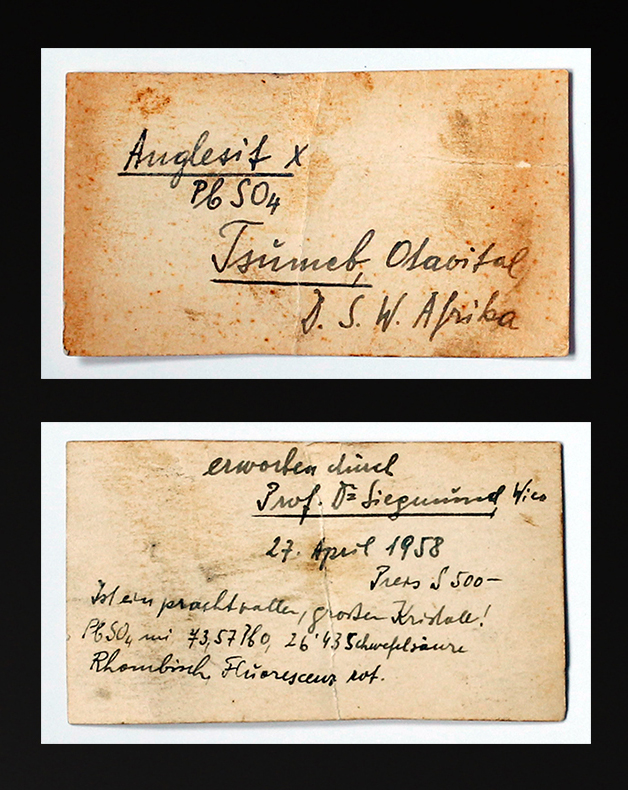 Anglesit x
PbSO4
Tsumeb, Otavital
D. S. W. Afrika
erworben durch
Prof. Dr Siegmund, Wien
27. April 1958
Preis S 500-
Ist ein prachtvoller, großer Kristall!
PbSO4 mit 73,57 PbO, 26'43 Schwefelsäure
Rhombisch, Fluorescenz rot.